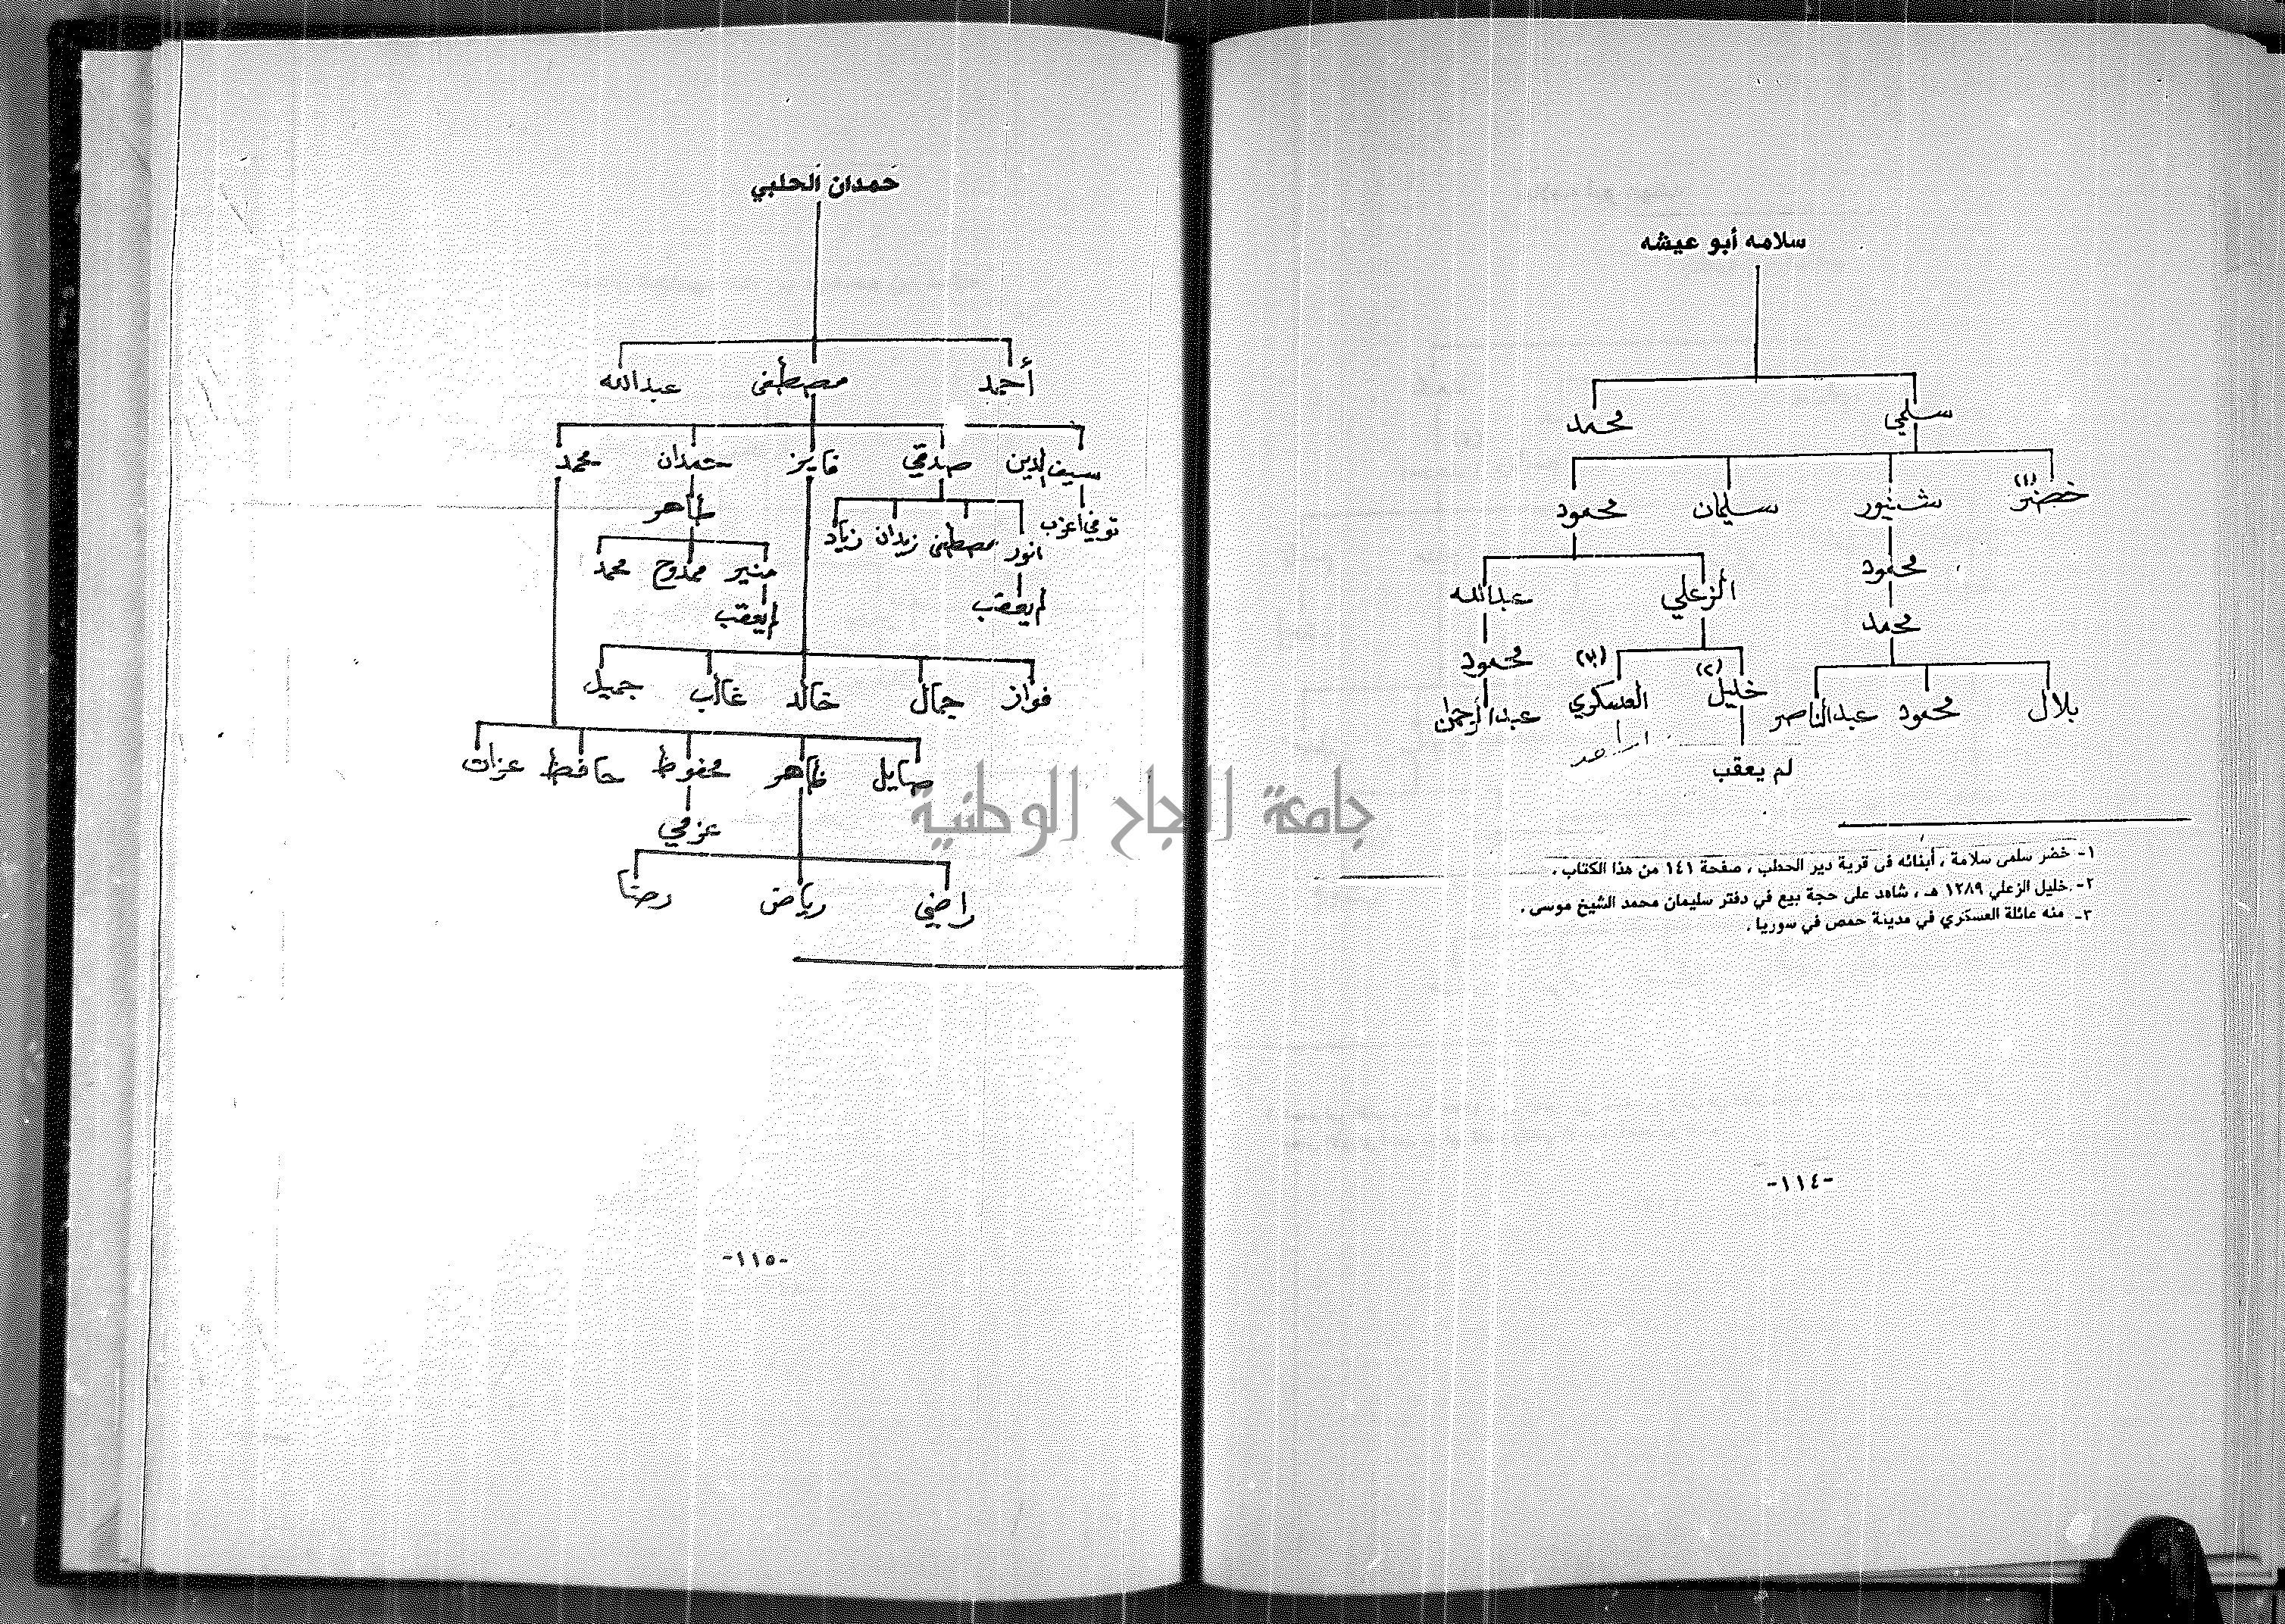 سلامه أبو عيشه
سلمي محمد
خضر (١) شنيور سليمان محمود
محمود الزعلي عبدالله
محمد
خليل (٢) العسكري (٣) محمود
بلال محمود عبدالناصر عبدالرحمن
لم يعقب
١- خضر سلمى سلامة ، أبنائه في قرية دير الحطب ، صفحة ١٤١ من هذا الكتاب .
٢- خليل الزعلي ١٢٨٩ هـ ، شاهد على حجة بيع في دفتر سليمان محمد الشيخ موسى .
٣- منه عائلة العسكري في مدينة حمص في سوريا .
-١١٤-
حمدان الحلبي
أحمد مصطفى عبدالله
سيف الدين صدقي فايز حمدان محمد
توفي اعزب انور مصطفى زيدان زياد طاهر
لم يعقب منير ممدوح محمد
لم يعقب
فواز جمال خالد غالب جميل
صايل ظاهر محفوظ حافظ عزات
عزمي
راضي رياض رضا
-١١٥-
جامعة النجاح الوطنية